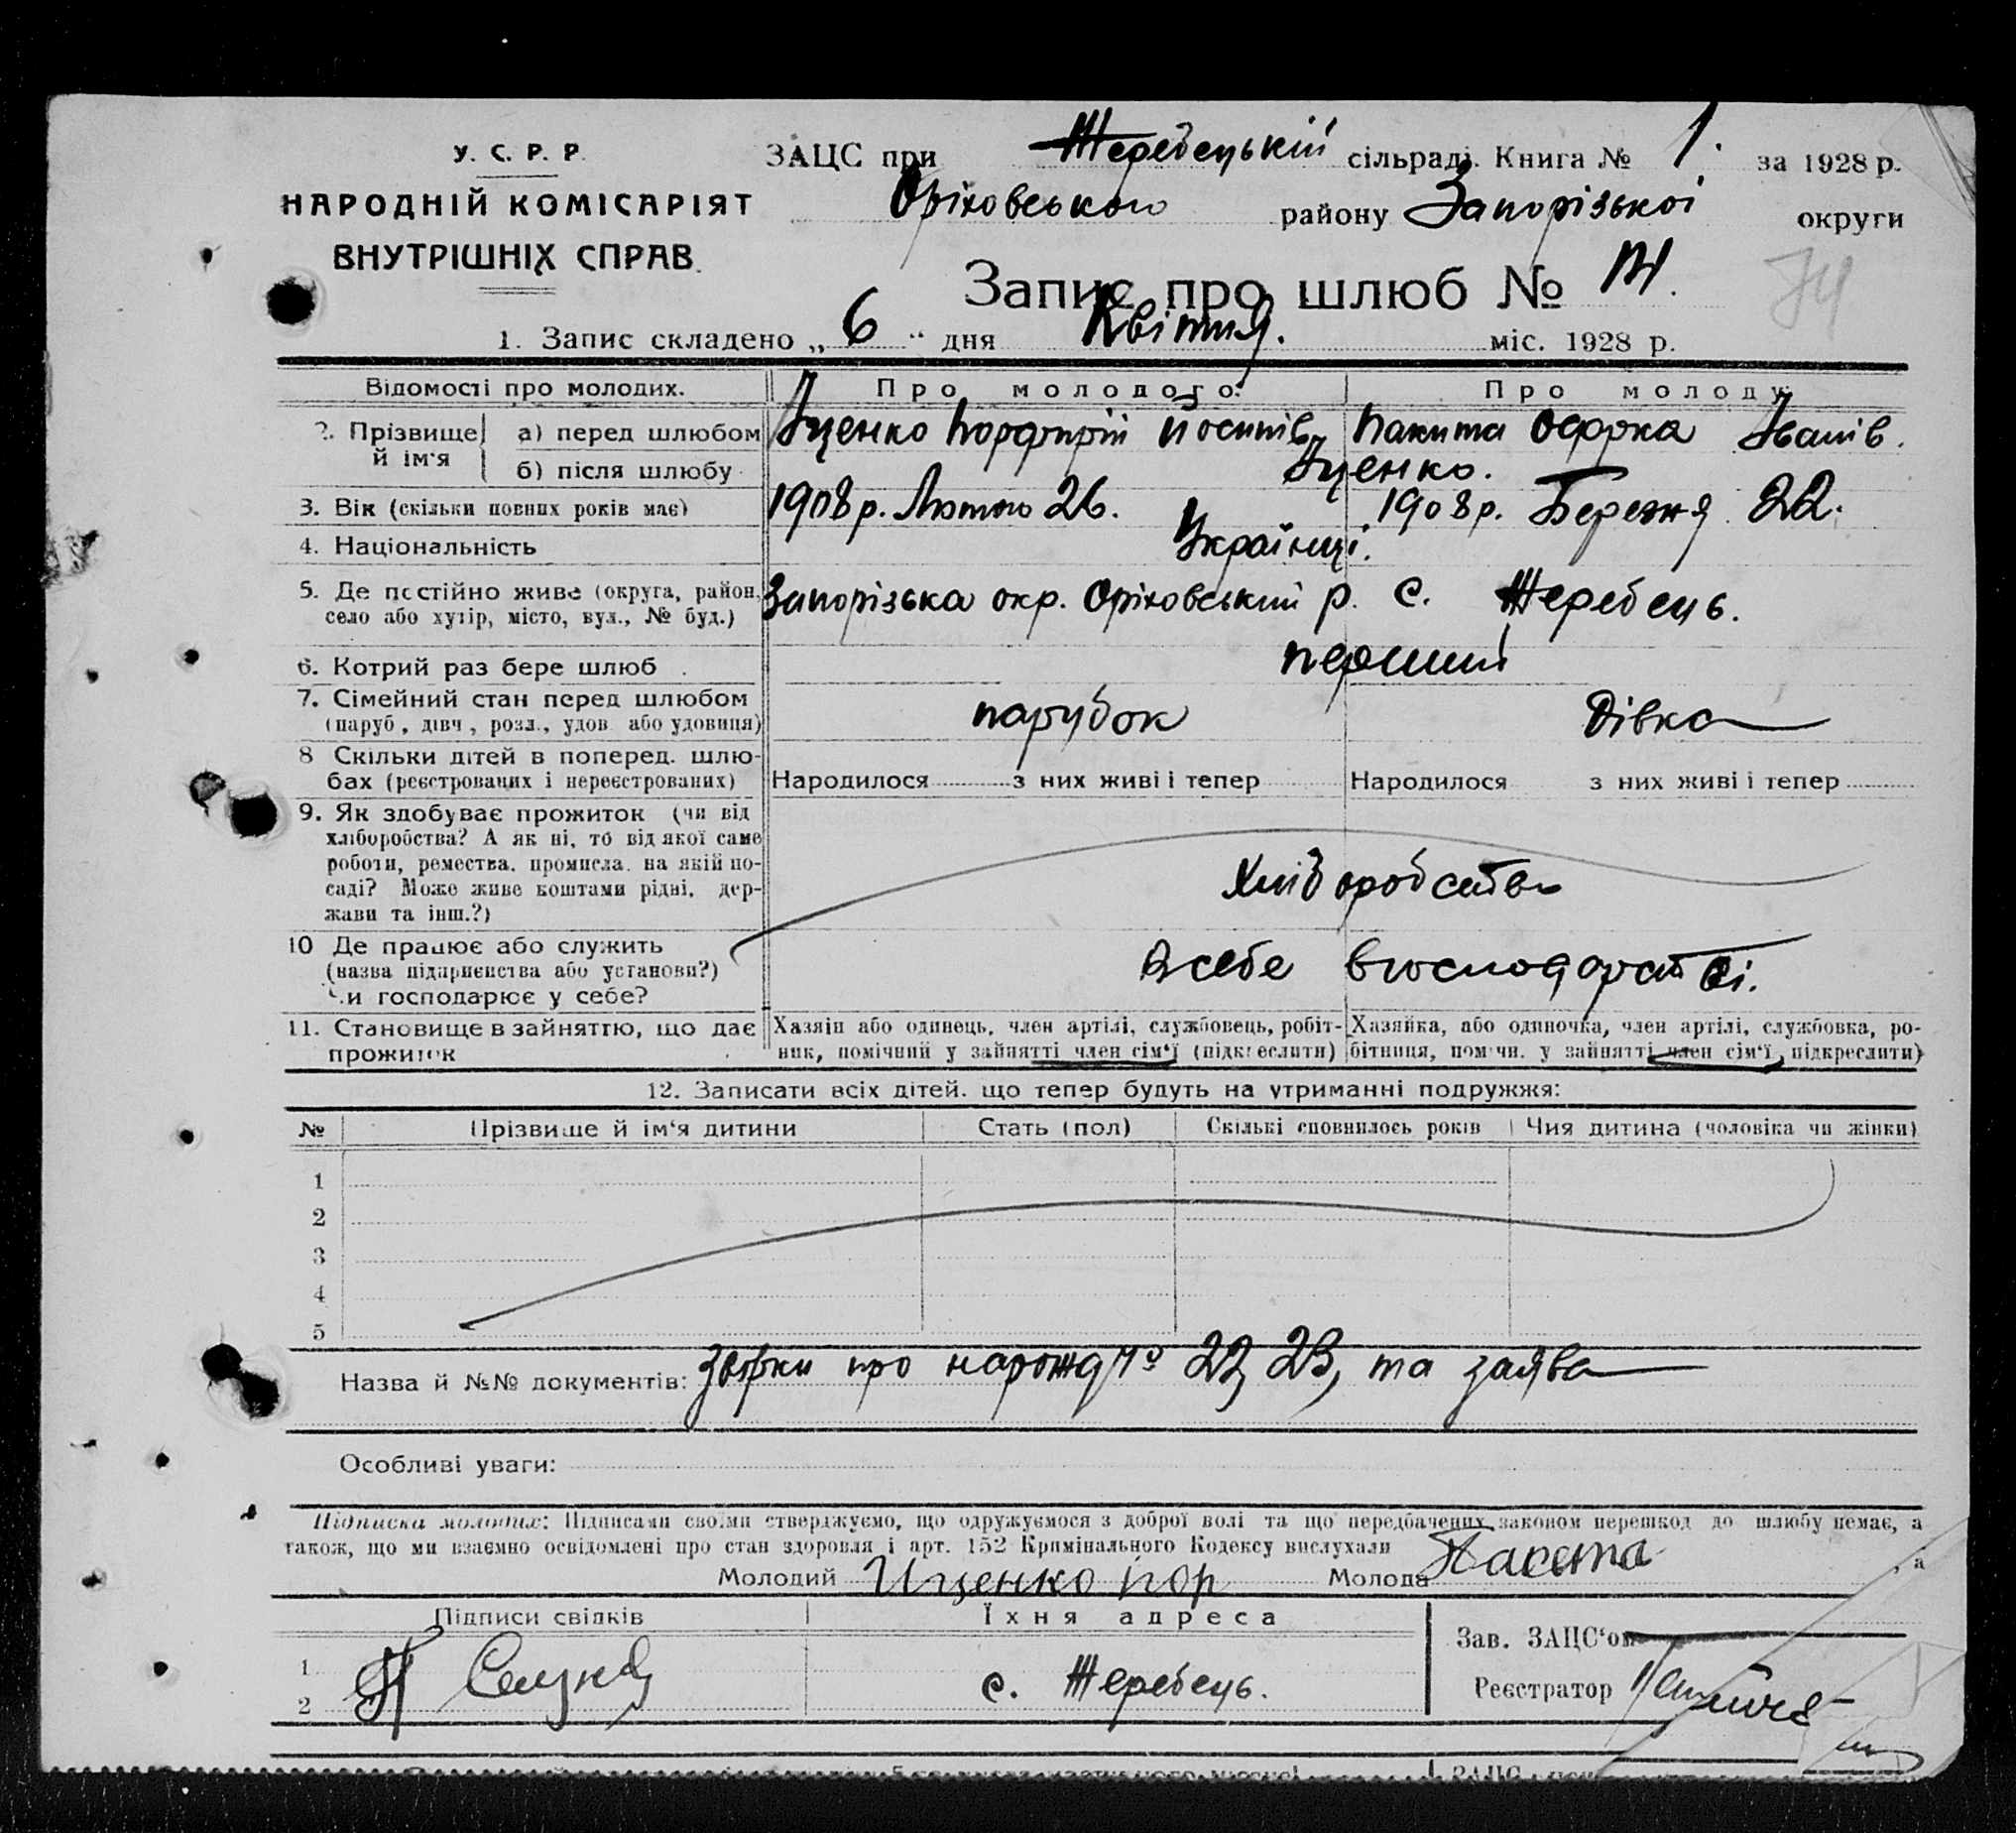 У. С. Р. Р.
НАРОДНІЙ КОМІСАРІЯТ
ВНУТРІШНІХ СПРАВ.
ЗАЦС при Жеребецькій сільраді. Книга № 1. за 1928 р.
Оріховського району Запорізької округи
Запис про шлюб №
74
1. Запис складено „ 6 “ дня Квітня. міс. 1928 р.
Відомості про молодих. Про молодого: Про молоду:
2. Прізвище й ім‘я а) перед шлюбом Іщенко Порфирій Йосипів Пакита Іванів.
б) після шлюбу Іщенко.
3. Вік (скільки повних років має) 1908 р. Лютого 26. 1908 р. Березня 22.
4. Національність Українці.
5. Де постійно живе (округа, район, село або хутір, місто, вул., № буд.) Запорізька окр. Оріховський р. с. Жеребець.
6. Котрий раз бере шлюб перший
7. Сімейний стан перед шлюбом (паруб., дівч., розл., удов. або удовиця) парубок Дівка
8 Скільки дітей в поперед. шлюбах (реєстрованих і нереєстрованих) Народилося з них живі і тепер Народилося з них живі і тепер
9. Як здобуває прожиток (чи від хліборобства? А як ні, то від якої саме роботи, ремества, промисла, на якій посаді? Може живе коштами рідні, держави та інш.?) Хліборобство
10 Де працює або служить (назва підприємства або установи?) Чи господарює у себе? в себе в господарстві.
11. Становище в зайняттю, що дає прожиток Хазяїн або одинець, член артілі, службовець, робітник, помічний у зайнятті член сім‘ї (підкреслити) Хазяйка, або одиночка, член артілі, службовка, робітниця, помічн. у зайнятті член сім‘ї, підкреслити)
12. Записати всіх дітей, що тепер будуть на утриманні подружжя:
№ Прізвище й ім‘я дитини Стать (пол) Скількі сповнилось років Чия дитина (чоловіка чи жінки)
1
2
3
4
5
Назва й №№ документів: про 22, 23, та заява
Особливі уваги:
Підписка молодих: Підписами своїми стверджуємо, що одружуємося з доброї волі та що передбачених законом перешкод до шлюбу немає, а
також, що ми взаємно освідомлені про стан здоровля і арт. 152 Кримінального Кодексу вислухали
Молодий Ищенко пор Молода
Підписи свідків Їхня адреса Зав. ЗАЦС‘ом
1
2 с. Жеребець. Реєстратор